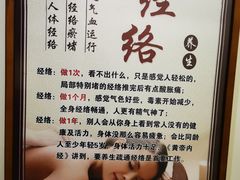 气血运行
经络瘀堵
人体经络
经络
养生
经络：做1次，看不出什么，只是感觉人轻松的，
局部特别堵的经络推完后有点酸胀痛；
经络：做1个月，感觉气色好些，毒素开始减少，
全身经络畅通，人更有精气神了；
经络：做1年，别人会从你身上看到常人没有的健
康及活力，身体没那么容易疲惫；会比同龄
人至少年轻5岁，身体活力十足，《黄帝内
经》讲到，要养生疏通经络是首要工作。